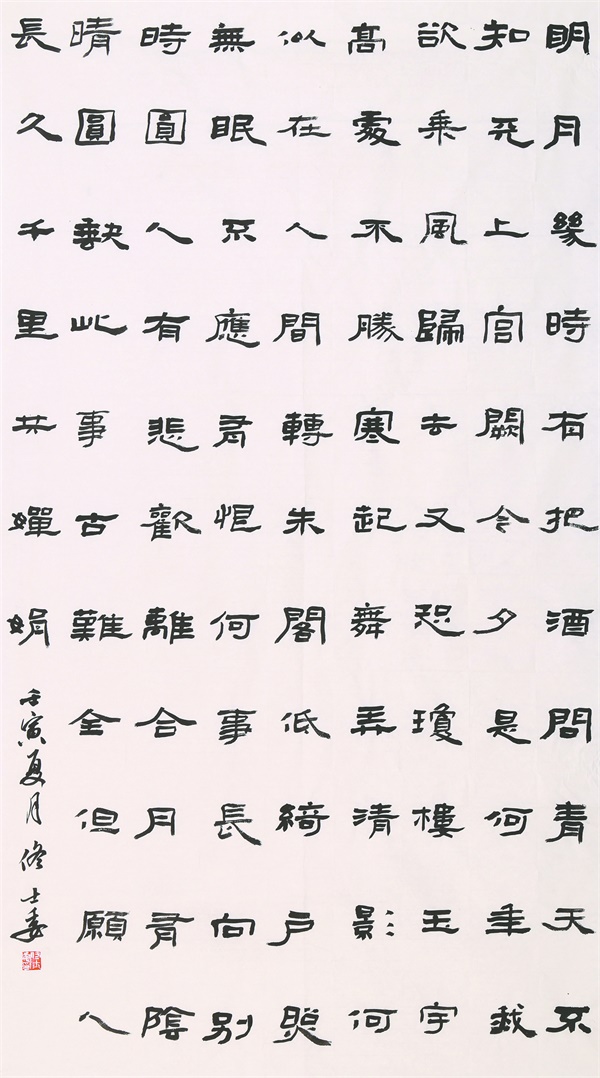 明月幾時有把酒問青天不
知天上宫闕今夕是何年我
欲乘風歸去又恐瓊樓玉宇
高處不勝寒起舞弄清影何
似在人間轉朱閣低綺户照
無眠不應有恨何事長向别
時圓人有悲歡離合月有陰
晴圓缺此事古難全但願人
長久千里共嬋娟
壬寅夏月士